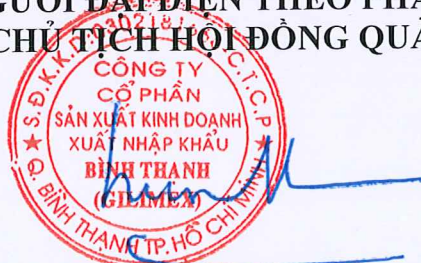 GƯỜI ĐẠI DIỆN THEO PHÁ
CHỦ TỊCH HỘI ĐỒNG QUẢ
S.Đ.K.K.D:0302181 C.T.C.P
CÔNG TY
CỔ PHẦN
SẢN XUẤT KINH DOANH
XUẤT NHẬP KHẨU
BÌNH THẠNH
(GILIMEX)
Q. BÌNH THẠNH TP. HỒ CHÍ MINH